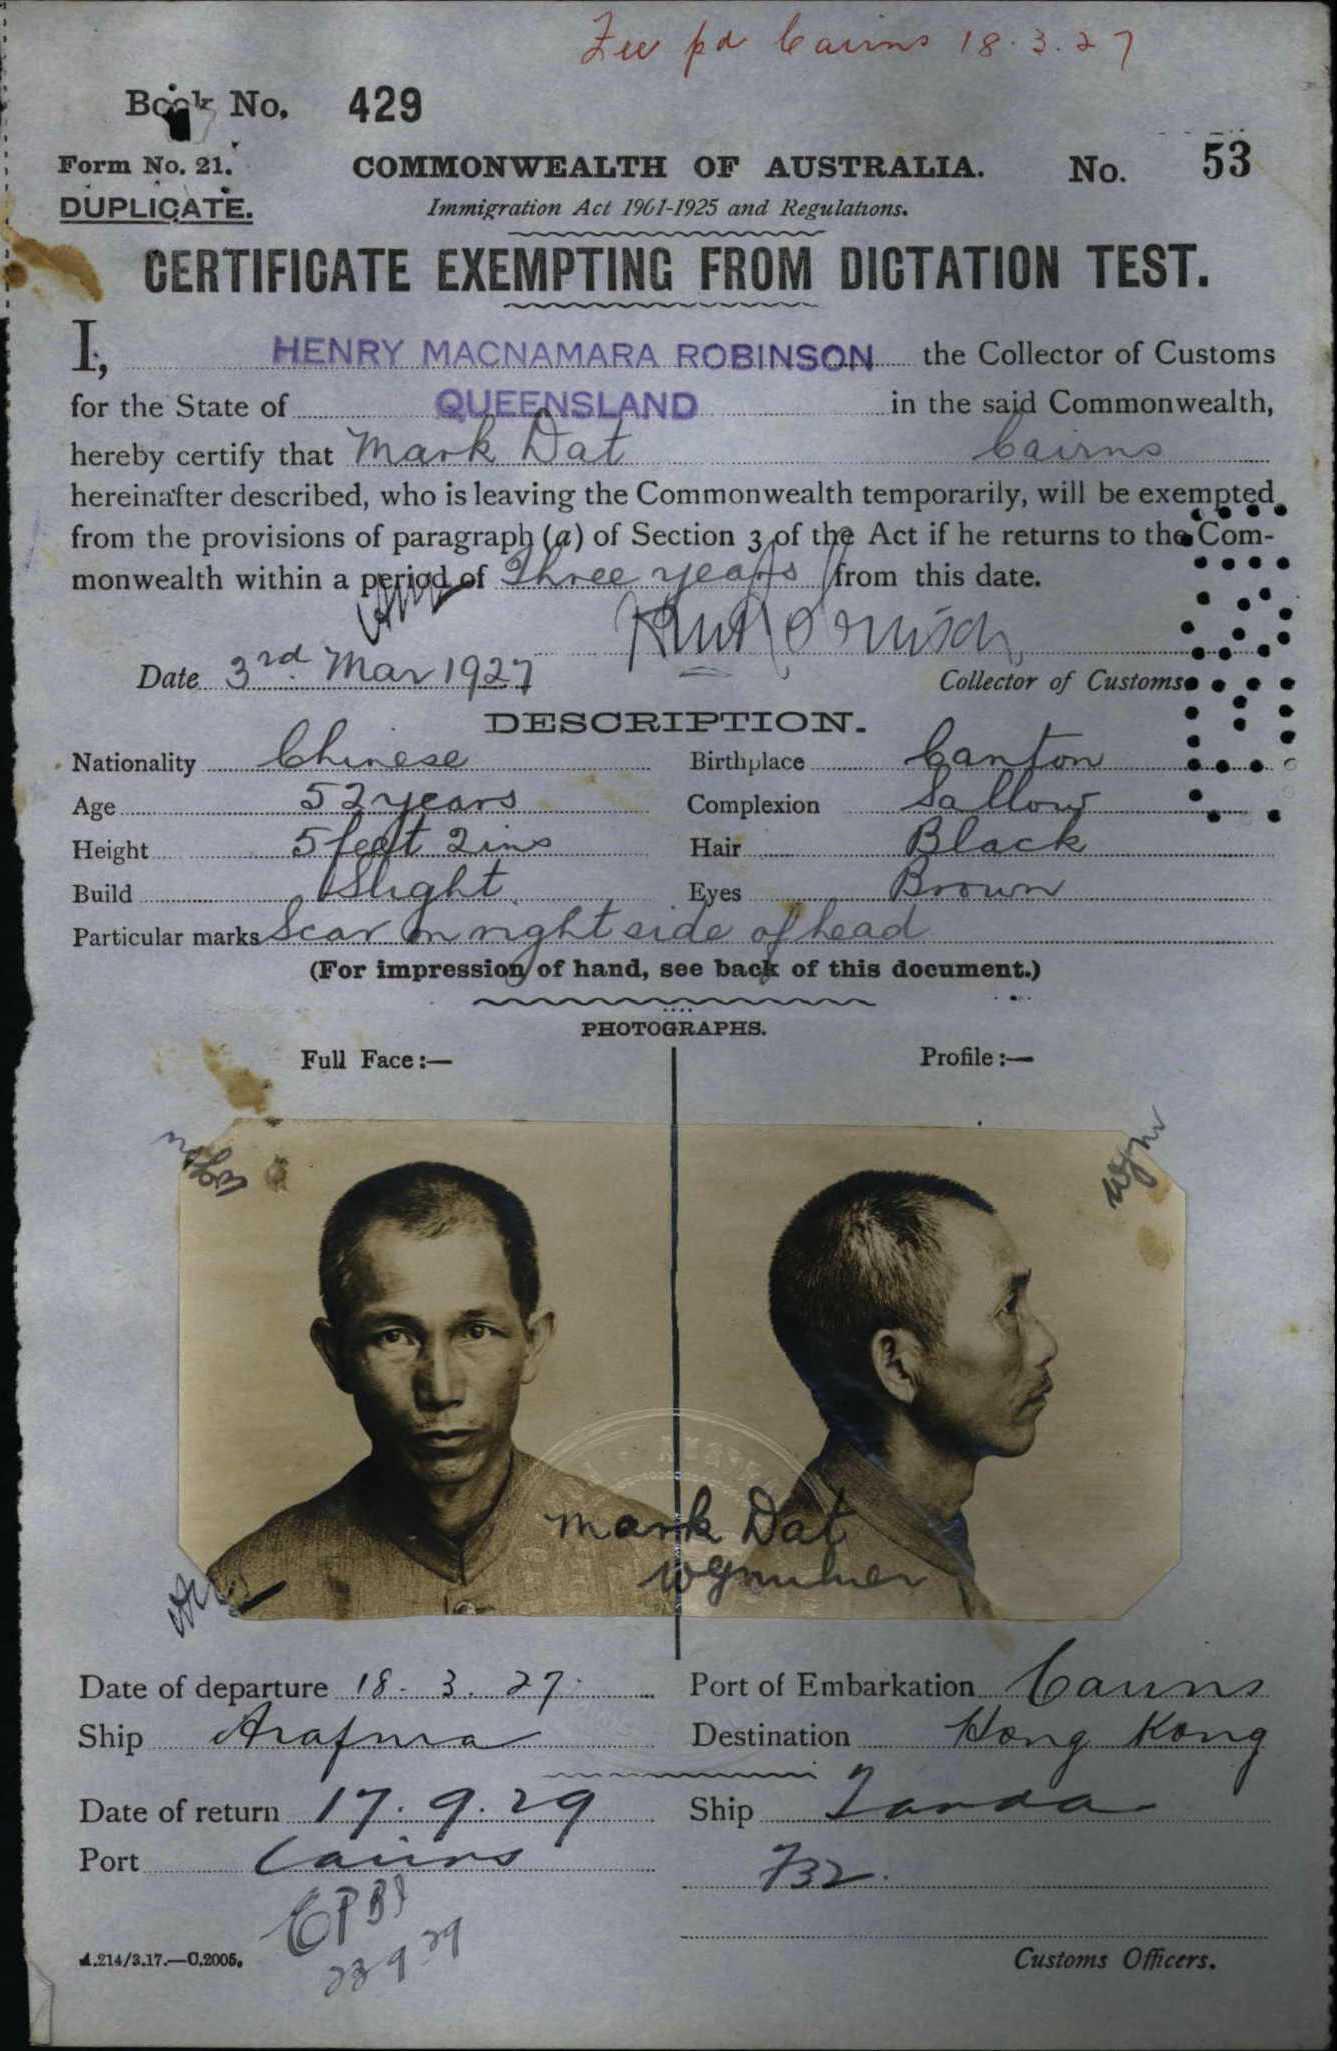 Fee pd Cairns 18.3.27
Book No. 429
Form No. 21. COMMONWEALTH OF AUSTRALIA. No. 53
DUPLICATE. Immigration Act 1901-1925 and Regulations.
CERTIFICATE EXEMPTING FROM DICTATION TEST.
I, HENRY MACNAMARA ROBINSON the Collector of Customs
for the State of QUEENSLAND in the said Commonwealth,
hereby certify that Mark Dat Cairns
hereinafter described, who is leaving the Commonwealth temporarily, will be exempted
from the provisions of paragraph (a) of Section 3 of the Act if he returns to the Com-
monwealth within a period of Three years from this date.
Date 3rd Mar 1927 Collector of Customs
DESCRIPTION.
Nationality Chinese Birthplace Canton
Age 52 years Complexion Sallow
Height 5 feet 2 ins Hair Black
Build Slight Eyes Brown
Particular marks Scar on right side of head
(For impression of hand, see back of this document.)
PHOTOGRAPHS.
Full Face:— Profile:—
Mark Dat
Date of departure 18.3.27. Port of Embarkation Cairns
Ship Arafura Destination Hong Kong
Date of return 17.9.29 Ship Tanda
Port Cairns
23 9 29
A.214/3.17.—C.2005. Customs Officers.